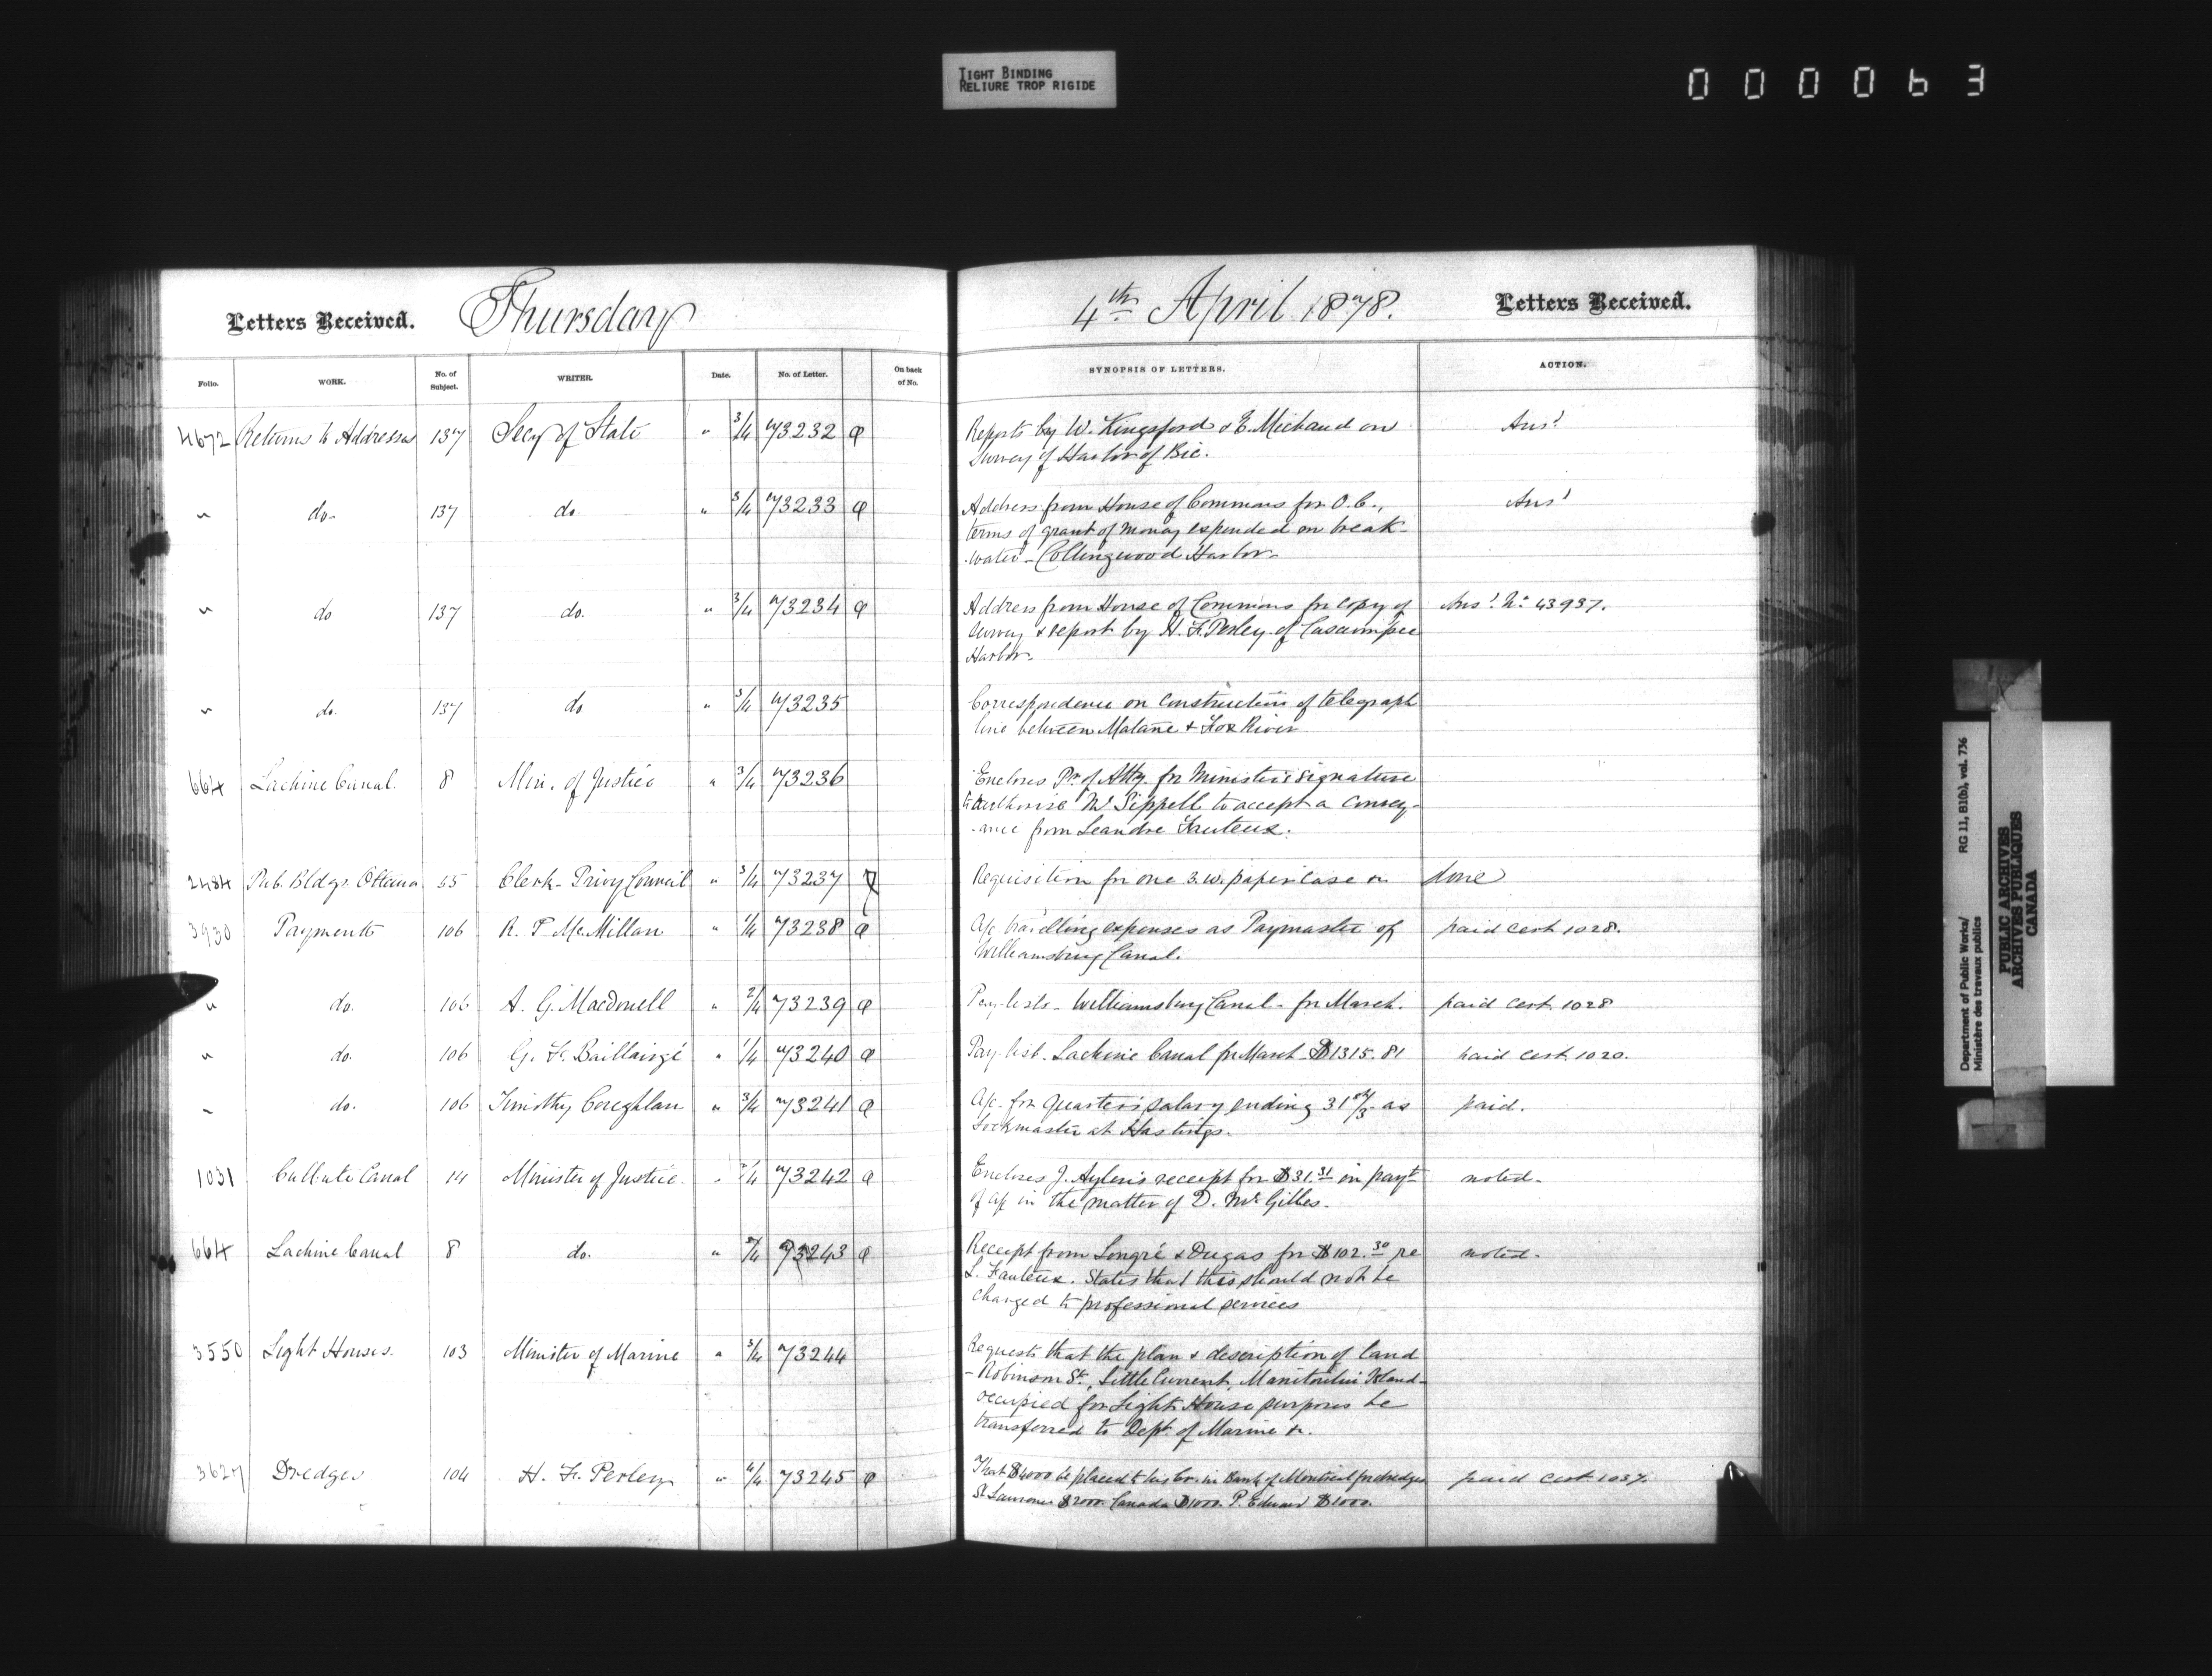 TIGHT BINDING
RELIURE TROP RIGIDE
000063
Letters Received. Thursday 4th April 1878. Letters Received.
Folio. WORK. No. of Subject. WRITER. Date. No. of Letter. On back of No. SYNOPSIS OF LETTERS. ACTION.
4672 Returns to Addresses 137 Secy of State " 3/4 73232 a Reports by W. Kingsford & E. Michaud on Ansd
Survey of Harbor of Bic.
" do. 137 do. " 3/4 73233 a Address from House of Commons for O.C., Ansd
terms of grant of money expended on break-
-water - Collingwood Harbor.
" do 137 do. " 3/4 73234 a Address from House of Commons for copy of Ansd. No. 43937.
survey & report by H. F. Perley of Cascumpec
Harbor.
" do. 137 do " 3/4 73235 Correspondence on construction of telegraph
line between Matane & Fox River
664 Lachine Canal. 8 Min. of Justice " 3/4 73236 Encloses Pr. of Atty. for Ministers signature
to authorise Mr Sippell to accept a convey-
-ance from Leandre Fauteux.
2484 Pub. Bldgs. Ottawa 55 Clerk - Privy Council " 3/4 73237 Requisition for one 3.w. paper case &c done
3930 Payments 106 R. T. McMillan " 1/4 73238 a a/c travelling expenses as Paymaster of paid cert. 1028.
Williamsburg Canal.
" do. 106 A. G. Macdonell " 2/4 73239 a Pay-lists - Williamsburg Canal - for March. paid cert. 1028
" do. 106 G. F. Baillairgé " 1/4 73240 a Pay-list - Lachine Canal for March - $1315.81 paid cert. 1020.
" do. 106 Timothy Coughlan " 3/4 73241 a a/c. for quarter's salary ending 31st/3 as paid.
Lockmaster at Hastings.
1031 Culbute Canal 14 Minister of Justice " 2/4 73242 a Encloses J. Aylen's receipt for $31.31 in payt noted.
of a/c in the matter of D. McGillies.
664 Lachine Canal 8 do. " 3/4 73243 a Receipt from Longré & Dugas for $102.30 re noted.
L. Fauteux. States that this should not be
charged to professional services
3550 Light Houses. 103 Minister of Marine " 3/4 73244 Requests that the plan & description of land
- Robinson St., Little Current, Manitoulin Island -
occupied for Light House purposes be
transferred to Dept. of Marine &c.
3627 Dredges 104 H. F. Perley " 4/4 73245 a That $4000 be placed to his Cr. in Bank of Montreal for dredges paid cert. 1037.
St Lawrence $2000. Canada $1000. P. Edward $1000.
Department of Public Works/ RG 11, B1(b), vol. 736
Ministère des travaux publics
PUBLIC ARCHIVES
ARCHIVES PUBLIQUES
CANADA